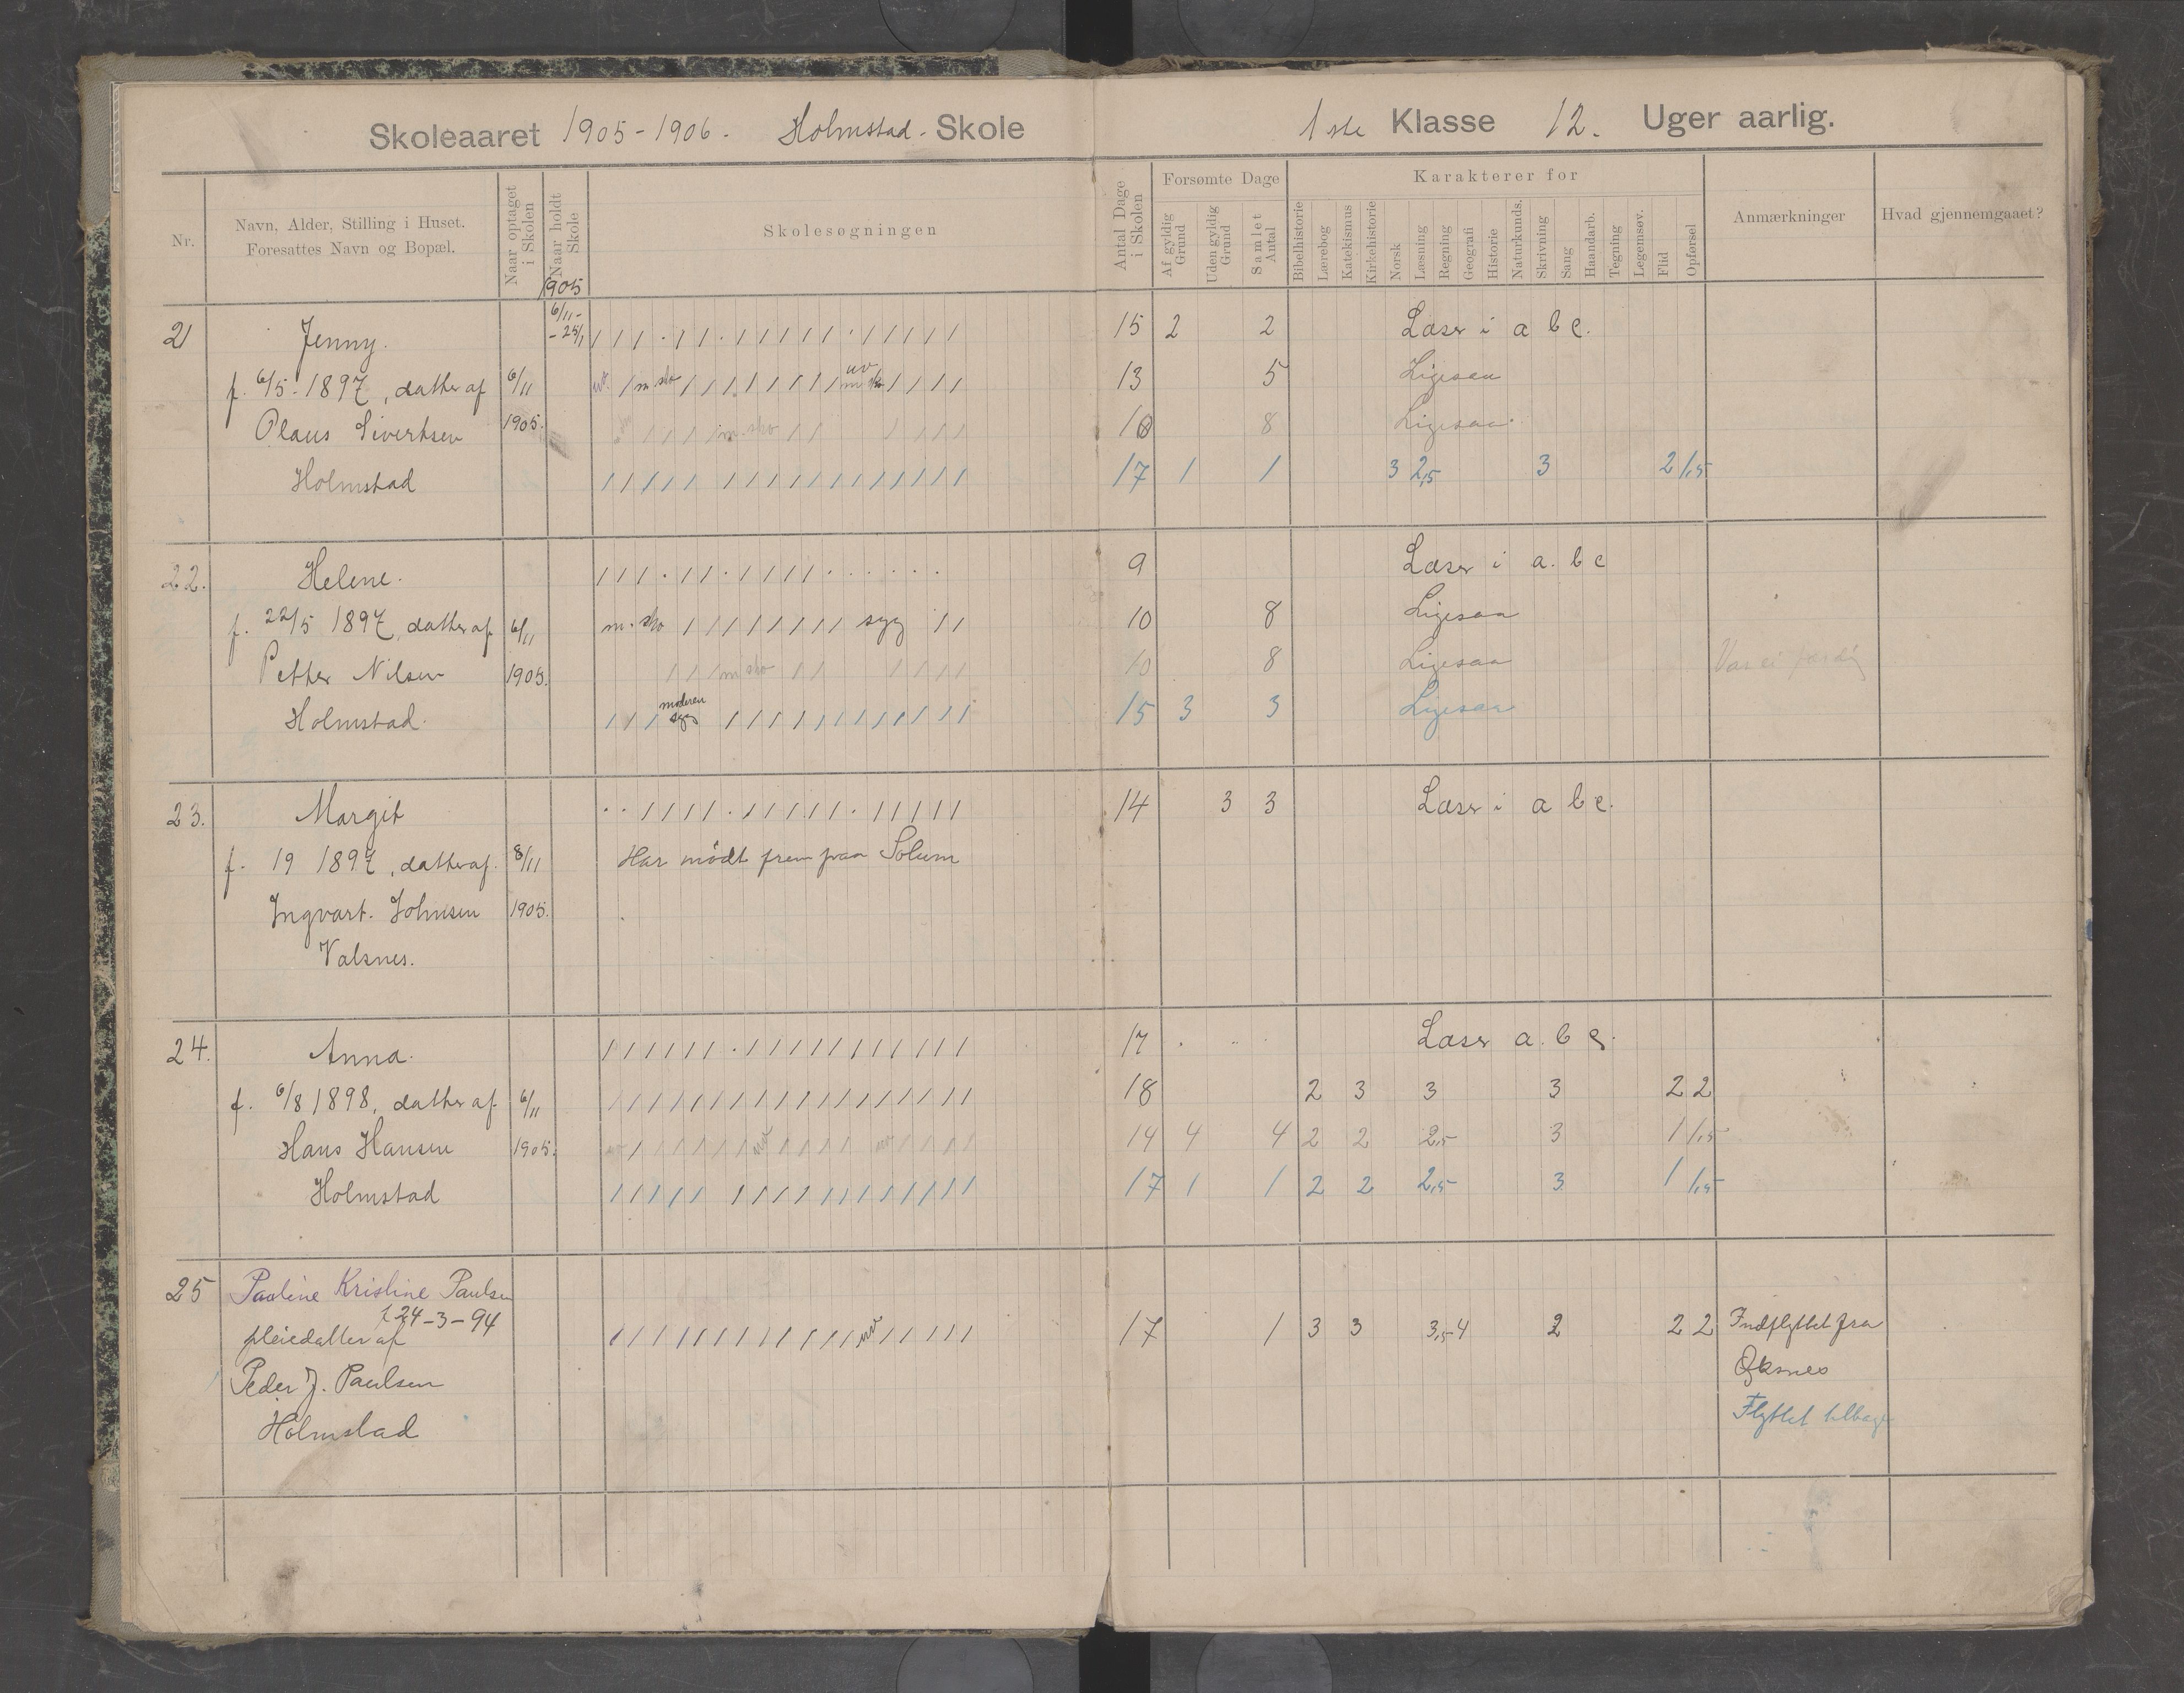 Skoleaaret 1905-1906. Holmstad. Skole 1ste Klasse 12. Uger aarlig.
Nr.
Navn, Alder, Stilling i Huset.
Foresattes Navn og Bopæl.
Naar optaget i Skolen
Naar holdt Skole
Skolesøgningen
Antal Dage i Skolen
Forsømte Dage
Af gyldig Grund
Uden gyldig Grund
Samlet Antal
Karakterer for
Bibelhistorie
Lærebog
Katekismus
Kirkehistorie
Norsk
Læsning
Regning
Geografi
Historie
Naturkunds.
Skrivning
Sang
Haandarb.
Tegning
Legemsøv.
Flid
Opførsel
Anmærkninger
Hvad gjennemgaaet?
1905
21 Jenny. 6/11- - 25/1 / / / . / / . / / / / / / . / / / / / 15 2 2 Læser i a b c.
f. 6/5. 1897, datter af 6/11 uv. / m. sko / / / / / / / / uv m sko / / / / 13 5 Ligesaa
Olaus Sivertsen 1905. / / / / m. sko / / / / / / 10 8 Ligesaa.
Holmstad / / / / / / / / / / / / / / / / / 17 1 1 3 2,5 3 2 1,5
22. Helene. / / / . / / . / / / / . . . . . . 9 Læser i a. b c
f. 22/5 1897, datter af 6/11 m. sko / / / / / / / / syg / / 10 8 Ligesaa
Petter Nilsen 1905. / / / m sko / / / / / / 10 8 Ligesaa Var ei færdig
Holmstad. / / / moderen syg / / / / / / / / / / / / 15 3 3 Ligesaa
23. Margit . . / / / / . / / / / / . / / / / / 14 3 3 Læser i a b c.
f. 19 1897, datter af. 8/11 Har mødt frem paa Solum
Ingvart. Johnsen 1905.
Valsnes.
24. Anna. / / / / / / . / / / / / / / / / / / 17 Læser a. b c.
f. 6/8 1898, datter af 6/11 / / / / / / / / / / / / / / / / / / 18 2 3 3 3 2 2
Hans Hansen 1905. uv / / / / / / uv / / / / uv / / / / 14 4 4 2 2 2,5 3 1 1,5
Holmstad / / / / / / / / / / / / / / / / / 17 1 1 2 2 2,5 3 1 1,5
25 Pauline Kristine Paulsen
f. 24-3-94
pleiedatter af / / / / / / / / / / / / uv / / / / / 17 1 3 3 3,5 4 2 2 2 Indflyttet fra
Peder J. Paulsen Øksnes
Holmstad Flyttet tilbage